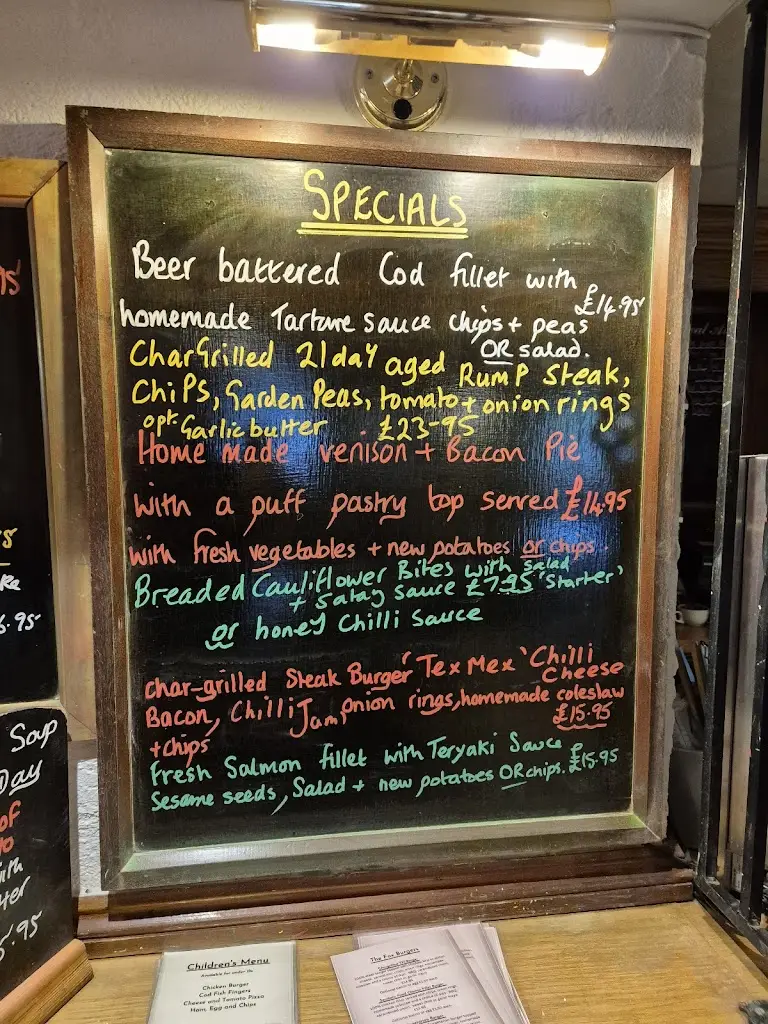 SPECIALS
Beer battered Cod fillet with
homemade Tartare sauce chips + peas £14.95
OR salad.
CharGrilled 21 day aged Rump Steak,
Chips, Garden Peas, tomato + onion rings
opt. Garlic butter £23-95
Home made venison + Bacon Pie
with a puff pastry top served £14.95
with fresh vegetables + new potatoes or chips.
Breaded Cauliflower Bites with salad
+ Satay sauce £7.95 'Starter'
or honey Chilli Sauce
char-grilled Steak Burger 'Tex Mex' Chilli Cheese
Bacon, Chilli Jam, onion rings, homemade coleslaw
+ chips £15.95
Fresh Salmon fillet with Teryaki Sauce
Sesame seeds, Salad + new potatoes OR chips. £15.95
Soup
Day
of
Children's Menu
Chicken Burger
Cod Fish Fingers
Cheese and Tomato Pizza
Ham, Egg and Chips
The Fox Burgers